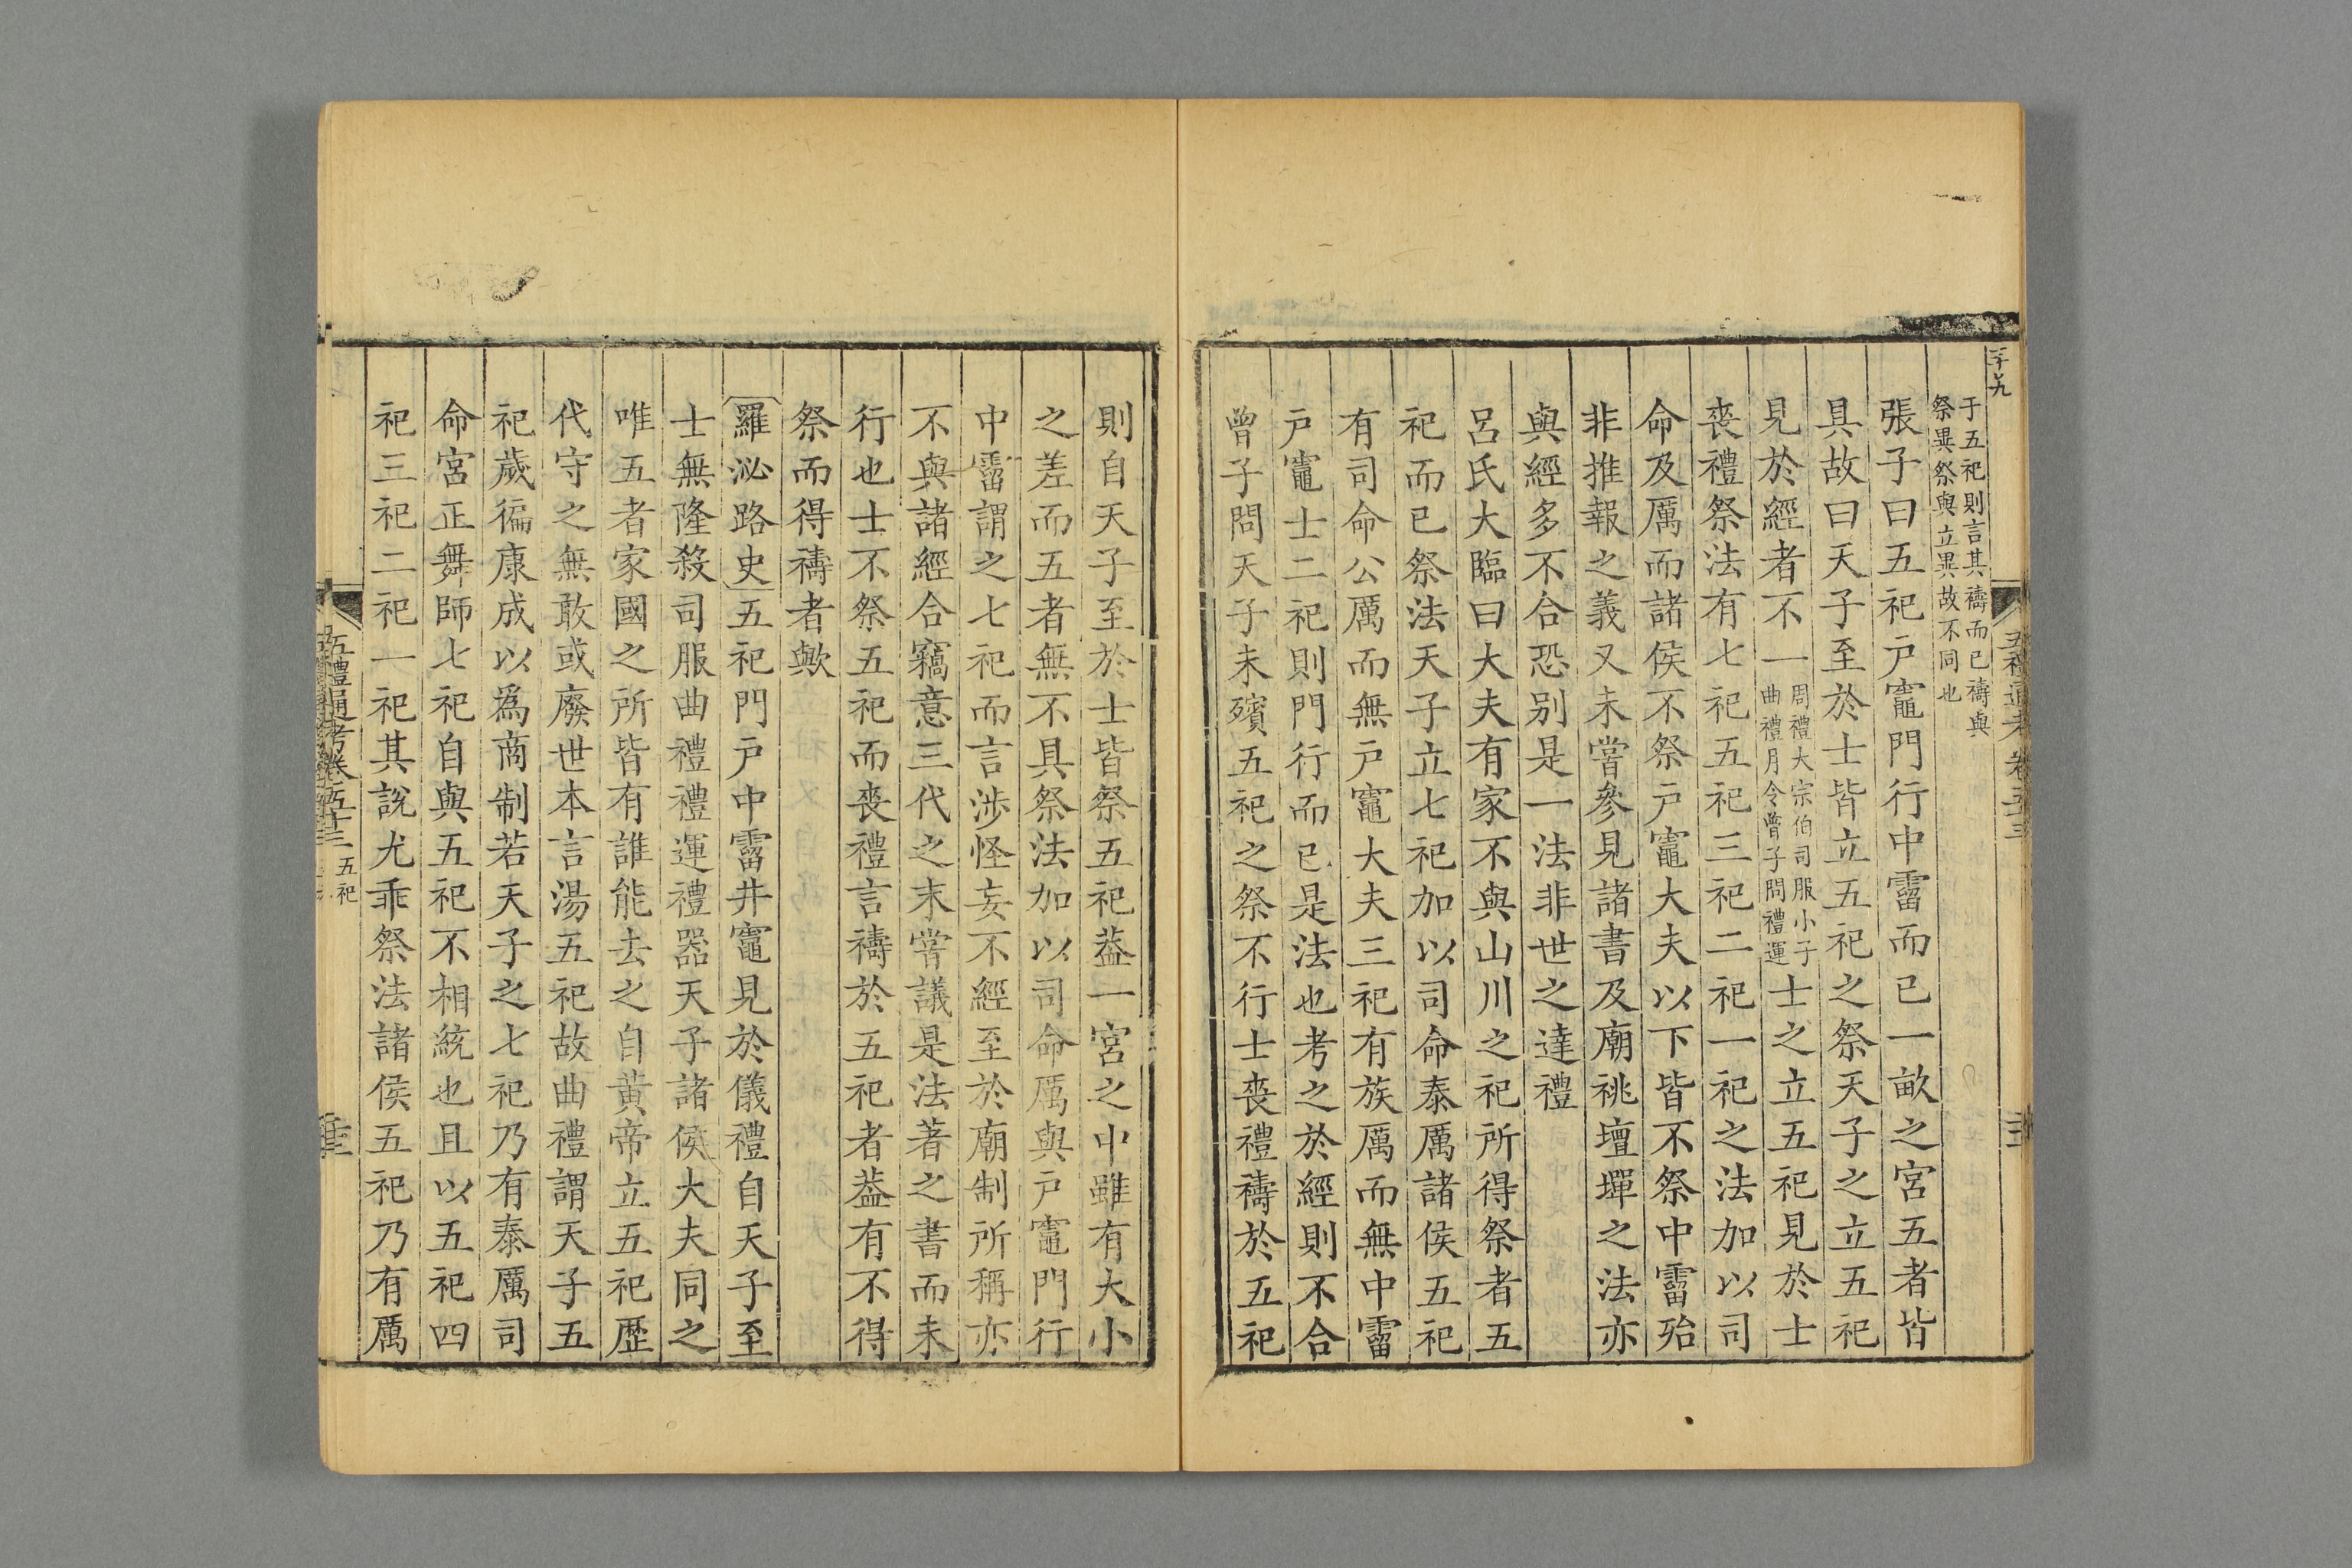 于五祀則言其禱而已禱與
祭異祭與立異故不同也
張子曰五祀戸竈門行中霤而已一畝之宮五者皆
具故曰天子至於士皆立五祀之祭天子之立五祀
見於經者不一周禮大宗伯司服小子曲禮月令曾子問禮運士之立五祀見於士
喪禮祭法有七祀五祀三祀二祀一祀之法加以司
命及厲而諸侯不祭戸竈大夫以下皆不祭中霤殆
非推報之義又未嘗參見諸書及廟祧壇墠之法亦
與經多不合恐别是一法非世之達禮
呂氏大臨曰大夫有家不與山川之祀所得祭者五
祀而已祭法天子立七祀加以司命泰厲諸侯五祀
有司命公厲而無戸竈大夫三祀有族厲而無中霤
戸竈士二祀則門行而已是法也考之於經則不合
曾子問天子未殯五祀之祭不行士喪禮禱於五祀
則自天子至於士皆祭五祀葢一宮之中雖有大小
之差而五者無不具祭法加以司命厲與戸竈門行
中霤謂之七祀而言涉怪妄不經至於廟制所稱亦
不與諸經合竊意三代之末嘗議是法著之書而未
行也士不祭五祀而喪禮言禱於五祀者葢有不得
祭而得禱者歟
羅泌路史五祀門戸中霤井竈見於儀禮自天子至
士無隆殺司服曲禮禮運禮器天子諸侯大夫同之
唯五者家國之所皆有誰能去之自黄帝立五祀歴
代守之無敢或廢世本言湯五祀故曲禮謂天子五
祀歲徧康成以爲商制若天子之七祀乃有泰厲司
命宮正舞師七祀自與五祀不相統也且以五祀四
祀三祀二祀一祀其說尤乖祭法諸侯五祀乃有厲
五禮通考卷五十三
五祀